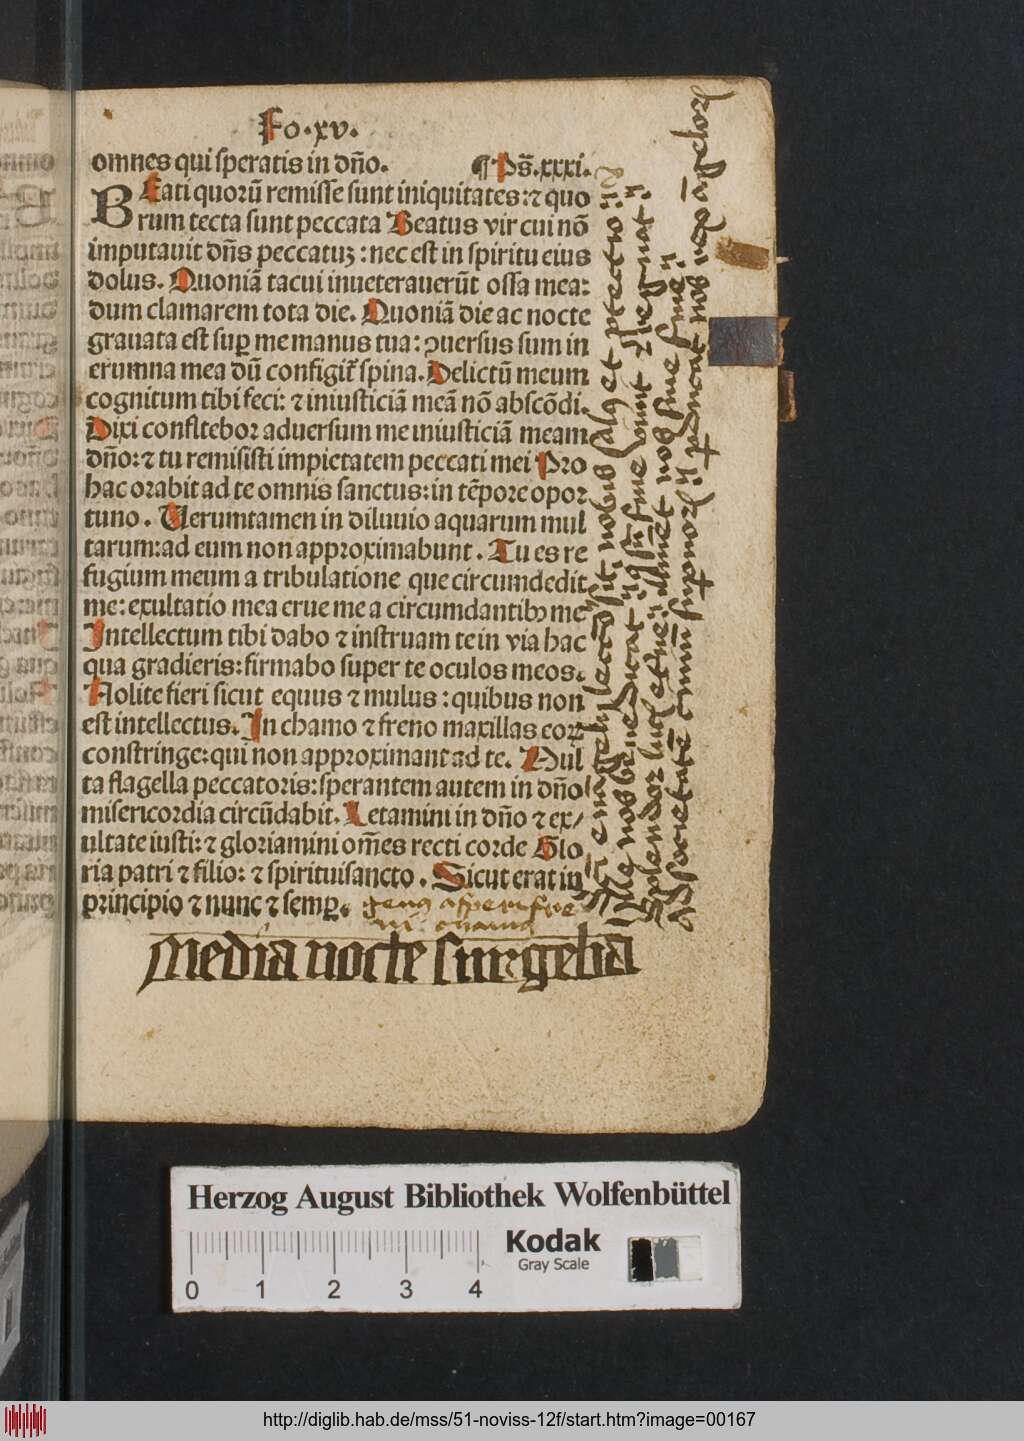 Fo.xv.
omnes qui speratis in dño. ¶ Ps̃.xxxi.
BEati quorũ remisse sunt iniquitates: ⁊ quo
rum tecta sunt peccata Beatus vir cui nõ
imputauit dñs peccatuꝫ: nec est in spiritu eius
dolus. Quoniã tacui inueterauerũt ossa mea:
dum clamarem tota die. Quoniã die ac nocte
grauata est suꝑ me manus tua: ꝯuersus sum in
erumna mea dũ configit̃ spina. Delictũ meum
cognitum tibi feci: ⁊ iniusticiã meã nõ abscõdi.
Dixi confitebor aduersum me iniusticiã meam
dño: ⁊ tu remisisti impietatem peccati mei Pro
hac orabit ad te omnis sanctus: in tẽpore opor
tuno. Uerumtamen in diluuio aquarum mul
tarum: ad eum non approximabunt. Tu es re
fugium meum a tribulatione que circumdedit
me: exultatio mea erue me a circumdantibꝰ me
Intellectum tibi dabo ⁊ instruam te in via hac
qua gradieris: firmabo super te oculos meos.
Nolite fieri sicut equus ⁊ mulus: quibus non
est intellectus. In chamo ⁊ freno maxillas eoꝝ
constringe: qui non approximant ad te. Mul
ta flagella peccatoris: sperantem autem in dño
misericordia circũdabit. Letamini in dño ⁊ ex/
ultate iusti: ⁊ gloriamini om̃es recti corde Glo
ria patri ⁊ filio: ⁊ spirituisancto. Sicut erat in
principio ⁊ nunc ⁊ semꝑ.
Media nocte surgeba
sit nobis
Ille nos
Splendor
Ad societatẽ
Herzog August Bibliothek Wolfenbüttel
0 1 2 3 4
Kodak
Gray Scale
http://diglib.hab.de/mss/51-noviss-12f/start.htm?image=00167